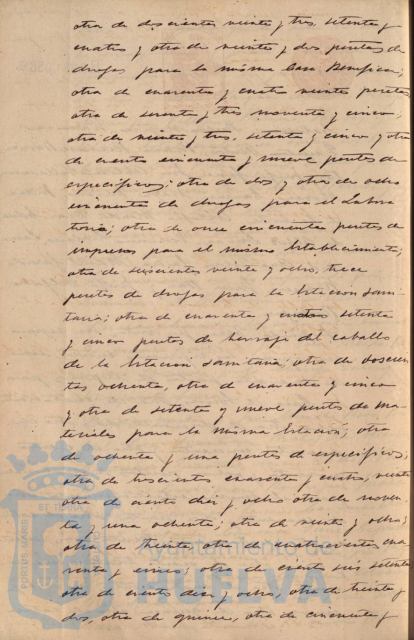 otra de doscientas veinte y tres, setenta y
cuatro y otra de veinte y dos pesetas de
drogas para la misma Casa Benefica;
otra de cuarenta y cuatro veinte pesetas
otra de setenta y tres noventa y cinco;
otra de veinte y tres, setenta y cinco y otra
de ciento cincuenta y nueve pesetas de
especificos; otra de dos y otra de ocho
cincuenta de drogas para el Labora
torio; otra de once cincuenta pesetas de
impresos para el mismo Establecimiento;
otra de seiscientas veinte y ocho, trece
pesetas de drogas para la Estacion Sani-
taria; otra de cuarenta y cuatro setenta
y cinco pesetas de herraje del caballo
de la Estacion Sanitaria; otra de doscien
tas ochenta, otra de cuarenta y cinco
y otra de setenta y nueve pesetas de ma-
teriales para la misma Estacion; otra
de ochenta y una pesetas de especificos;
otra de trescientas cuarenta y cuatro, veinte
otra de ciento diez y ocho otra de noven
ta y una ochenta; otra de veinte y ocho;
otra de treinta otra de cuatrocientas cua
renta y cinco; otra de ciento seis setenta
otra de ciento diez y ocho, otra de treinta y
dos, otra de quince, otra de cincuenta y
PORTUS MARIS ET TERRÆ
Ayuntamiento de
HUELVA